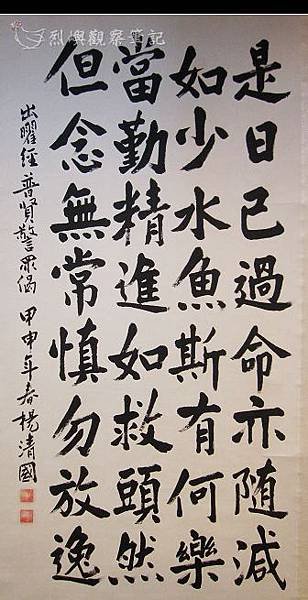 烈嶼觀察筆記
是日已過命亦随減
如少水魚斯有何樂
當勤精進如救頭然
但念無常慎勿放逸
出曜經普賢警眾偈 甲申年春楊清國